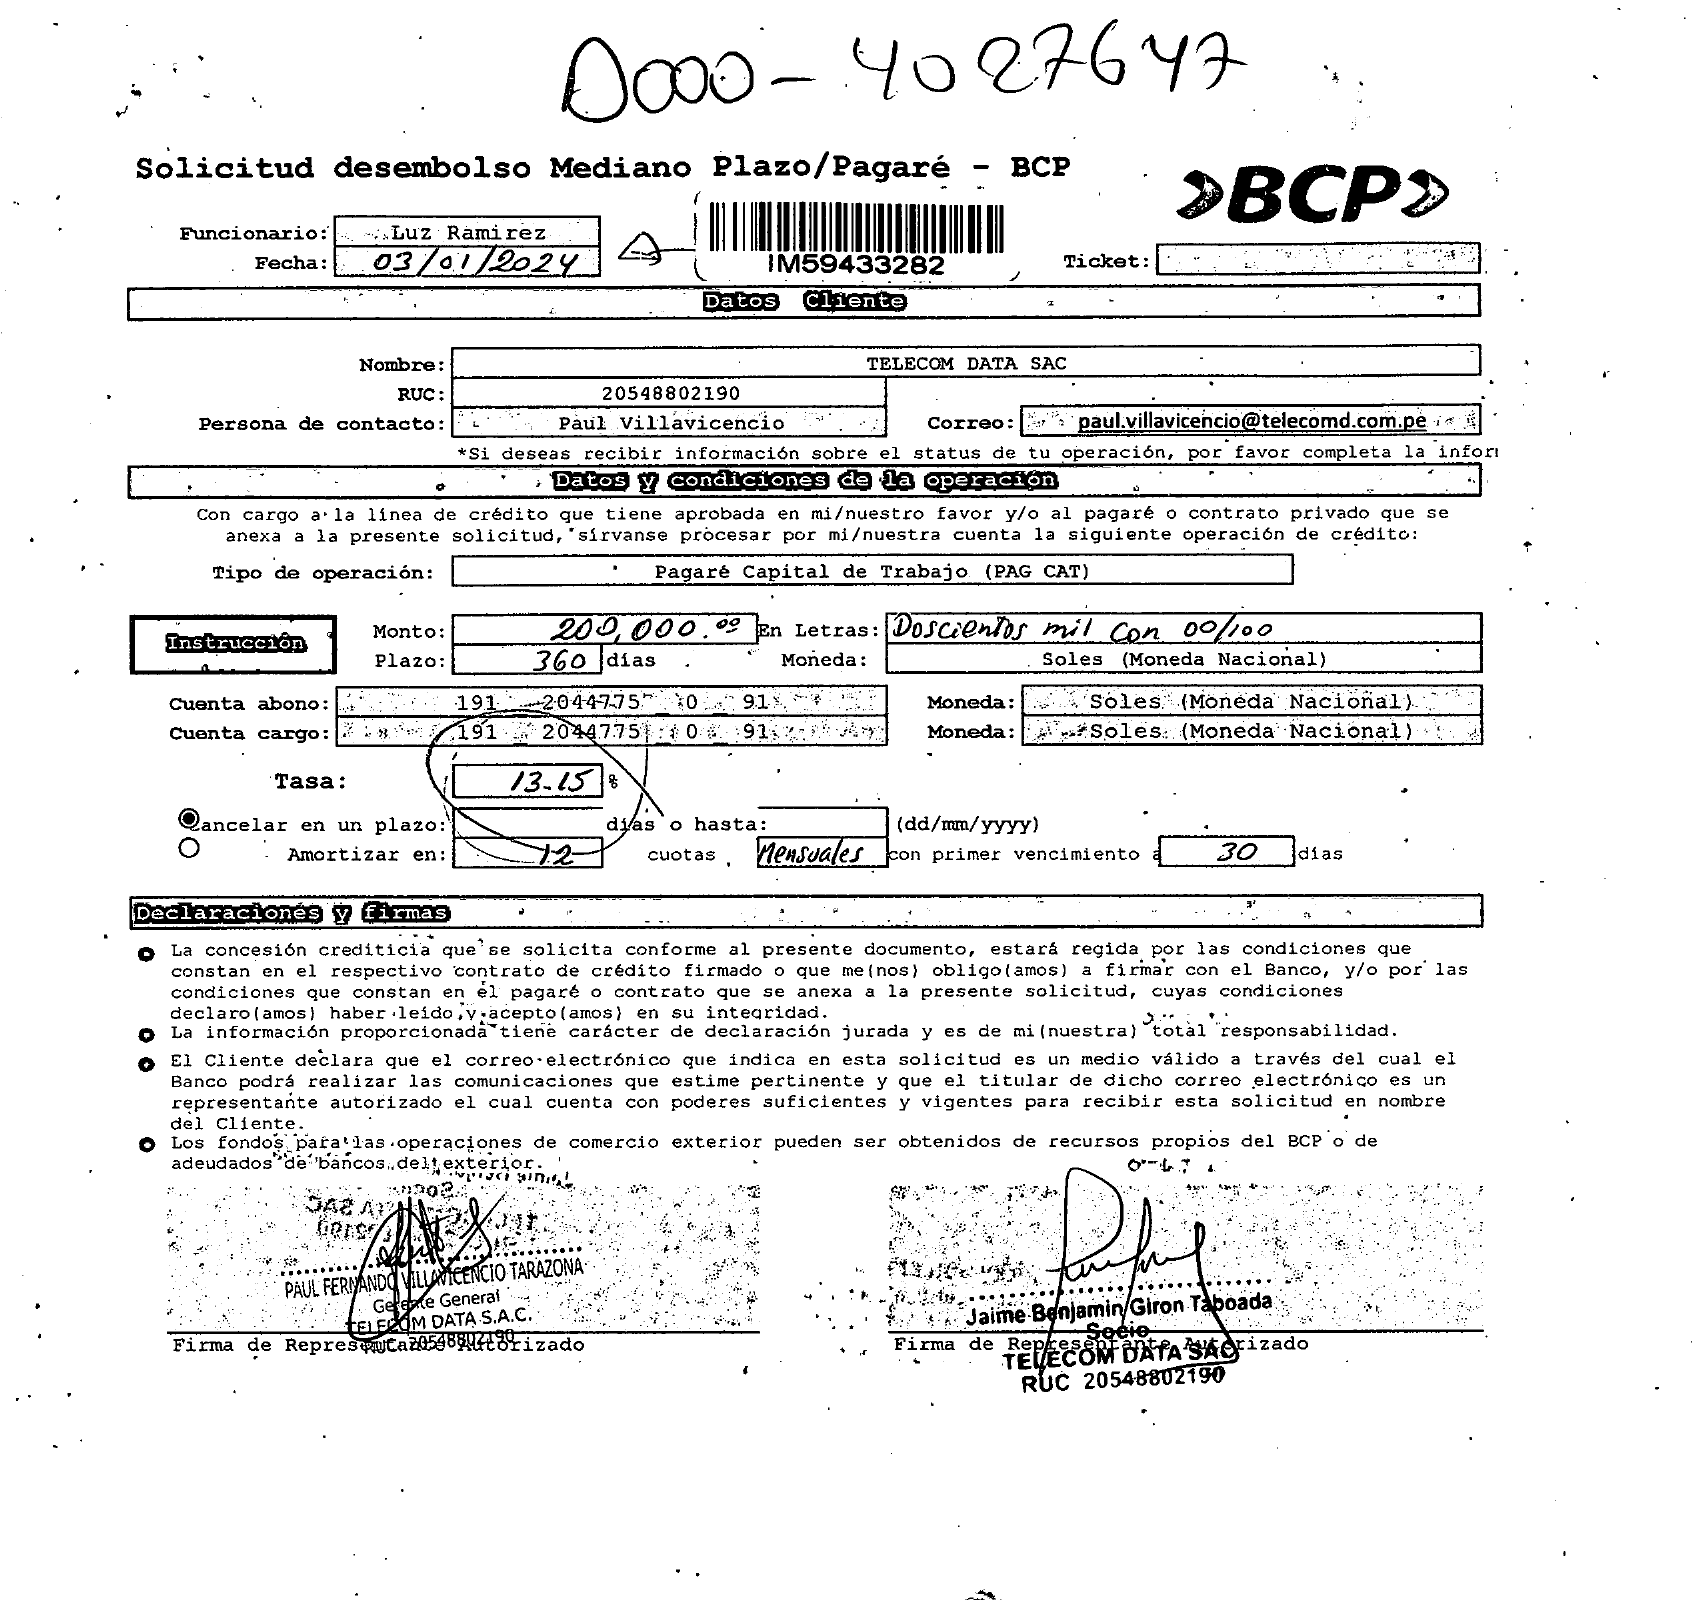 D000-4027647
Solicitud desembolso Mediano Plazo/Pagaré - BCP
»BCP»
Funcionario: Luz Ramirez
Fecha: 03/01/2024
IM59433282
Ticket:
Datos Cliente
Nombre: TELECOM DATA SAC
RUC: 20548802190
Persona de contacto: Paul Villavicencio Correo: paul.villavicencio@telecomd.com.pe
*Si deseas recibir información sobre el status de tu operación, por favor completa la infor
Datos y condiciones de la operación
Con cargo a la línea de crédito que tiene aprobada en mi/nuestro favor y/o al pagaré o contrato privado que se
anexa a la presente solicitud, sírvanse procesar por mi/nuestra cuenta la siguiente operación de crédito:
Tipo de operación: Pagaré Capital de Trabajo (PAG CAT)
Instrucción
Monto: 200,000.00 En Letras: Doscientos mil con 00/100
Plazo: 360 días Moneda: Soles (Moneda Nacional)
Cuenta abono: 191 2044775 0 91 Moneda: Soles (Moneda Nacional)
Cuenta cargo: 191 2044775 0 91 Moneda: Soles (Moneda Nacional)
Tasa: 13.15 %
Cancelar en un plazo: días o hasta: (dd/mm/yyyy)
Amortizar en: 12 cuotas Mensuales con primer vencimiento a 30 días
Declaraciones y firmas
La concesión crediticia que se solicita conforme al presente documento, estará regida por las condiciones que
constan en el respectivo contrato de crédito firmado o que me(nos) obligo(amos) a firmar con el Banco, y/o por las
condiciones que constan en el pagaré o contrato que se anexa a la presente solicitud, cuyas condiciones
declaro(amos) haber leído y acepto(amos) en su integridad.
La información proporcionada tiene carácter de declaración jurada y es de mi(nuestra) total responsabilidad.
El Cliente declara que el correo electrónico que indica en esta solicitud es un medio válido a través del cual el
Banco podrá realizar las comunicaciones que estime pertinente y que el titular de dicho correo electrónico es un
representante autorizado el cual cuenta con poderes suficientes y vigentes para recibir esta solicitud en nombre
del Cliente.
Los fondos para las operaciones de comercio exterior pueden ser obtenidos de recursos propios del BCP o de
adeudados de bancos del exterior.
PAUL FERNANDO VILLAVICENCIO TARAZONA
Gerente General
TELECOM DATA S.A.C.
RUC 20548802190
Firma de Representante Autorizado
Jaime Benjamin Giron Taboada
Socio
Firma de Representante Autorizado
TELECOM DATA SAC
RUC 20548802190